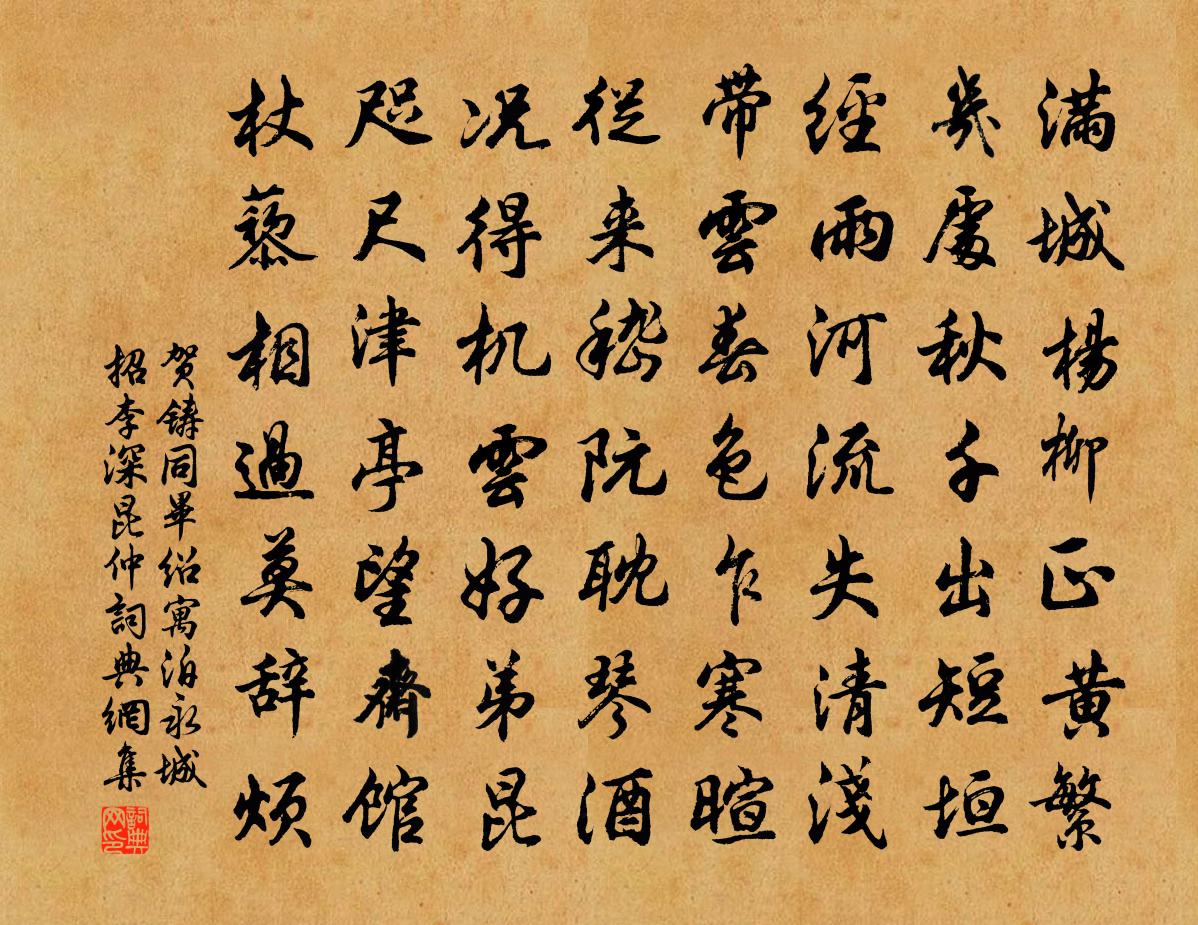 满城杨柳正黄繁
幾處秋千出短垣
經雨河流失清淺
带雲春色乍寒暄
從来嵇阮耽琴酒
况得机雲好弟昆
咫尺津亭望齋馆
杖藜相過莫辞烦
贺铸同畢绍寓泊永城
招李深昆仲詞典網集
詞典
网印